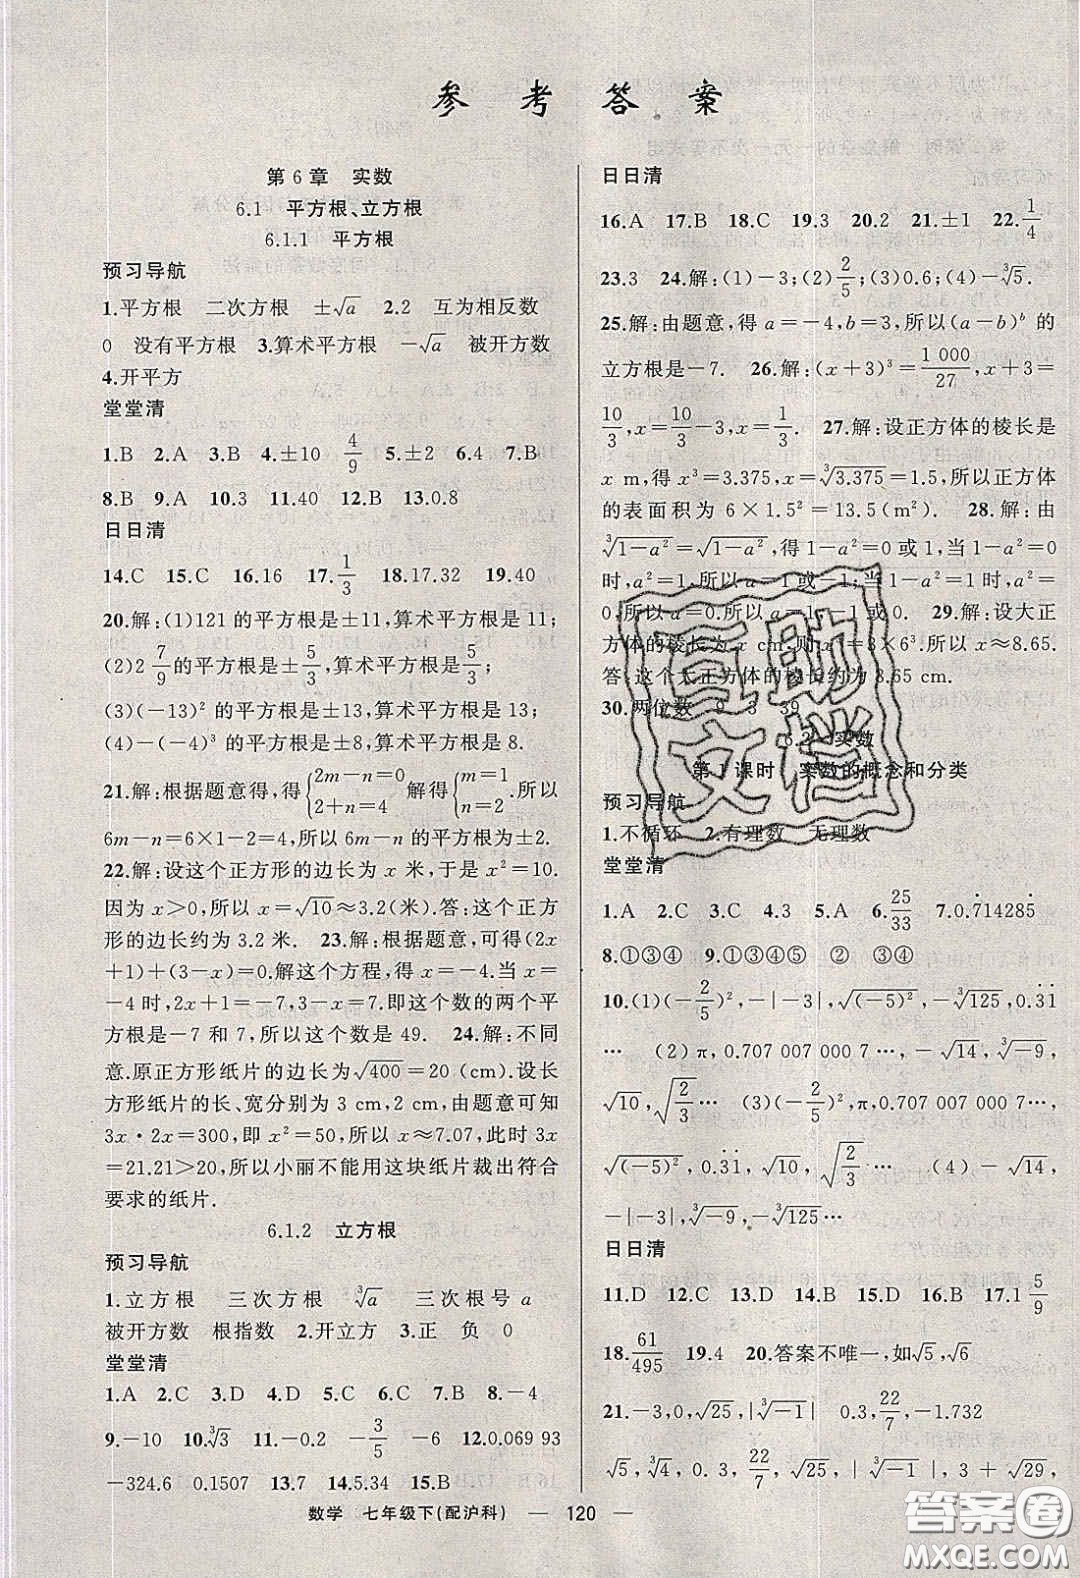 参考答案
第6章 实数
6.1 平方根、立方根
6.1.1 平方根
预习导航
1.平方根 二次方根 ±√a 2.2 互为相反数
0 没有平方根 3.算术平方根 -√a 被开方数
4.开平方
堂堂清
1.B 2.A 3.B 4.±10 4/9 5.±2 6.4 7.B
8.B 9.A 10.3 11.40 12.B 13.0.8
日日清
14.C 15.C 16.16 17.1/3 18.17.32 19.40
20.解:(1)121的平方根是±11,算术平方根是11;
(2)2 7/9的平方根是±5/3,算术平方根是5/3;
(3)(-13)²的平方根是±13,算术平方根是13;
(4)-(-4)³的平方根是±8,算术平方根是8.
21.解:根据题意得,得{2m-n=0 2+n=4,解得{m=1 n=2,所以
6m-n=6×1-2=4,所以6m-n的平方根是±2.
22.解:设这个正方形的边长为x米,于是x²=10.
因为x>0,所以x=√10≈3.2(米).答:这个正方
形的边长约为3.2米. 23.解:根据题意,可得(2x
+1)+(x+11)=0.解这个方程,得x=-4.当x=
-4时,2x+1=-7,x+11=7.即这个数的两个平
方根是-7和7,所以这个数是49. 24.解:不同
意.原正方形纸片的边长为√400=20(cm).设长
方形纸片的长、宽分别为3x cm,2x cm,由题意可知
3x·2x=300,即x²=50,所以x≈7.07,此时3x
=21.21>20,所以小丽不能用这块纸片裁出符合
要求的纸片.
6.1.2 立方根
预习导航
1.立方根 三次方根 ³√a 三次根号a
被开方数 根指数 2.开立方 3.正 负 0
堂堂清
1.A 2.C 3.D 4.D 5.C 6.C 7.B 8.-4
9.-10 10.³√3 11.-0.2 -3/5 -6 12.0.069 93
-324.6 0.1507 13.7 14.5.34 15.B
日日清
16.A 17.B 18.C 19.3 20.2 21.±1 22.1/4
23.3 24.解:(1)-3;(2)2/5;(3)0.6;(4)-³√5.
25.解:由题意,得a=-4,b=3,所以(a-b)ᵇ的
立方根是-7. 26.解:(x+3)³=1 000/27,x+3=
10/3,x=10/3-3,x=1/3. 27.解:设正方体的棱长是
x m,得x³=3.375,x=³√3.375=1.5,所以正方体
的表面积为6×1.5²=13.5(m²). 28.解:由
³√1-a²=√1-a²,得1-a²=0或1,当1-a²=0
时,a²=1,所以a=1或-1;当1-a²=1时,a²=
0,所以a=0.所以a=1,-1或0. 29.解:设大正
方体的棱长为x cm,则x³=3×6³.所以x≈8.65.
答:这个大正方体的棱长约为8.65 cm.
30.两位数 9 3 39
6.2 实数
第1课时 实数的概念和分类
预习导航
1.不循环 2.有理数 无理数
堂堂清
1.A 2.C 3.C 4.3 5.A 6.25/33 7.0.7̇14285̇
8.①③④ 9.①③④⑤ ② ③④
10.(1)(-2/5)²,-|-3|,√(-5)²,-³√125,0.3̇1̇
… (2)π,0.707 007 000 7…,-√14,³√-9,
√10,√2/3… (3)(-2/5)²,π,0.707 007 000 7…,
√(-5)²,0.3̇1̇,√10,√2/3… (4)-√14,
-|-3|,³√-9,-³√125…
日日清
11.D 12.C 13.D 14.C 15.D 16.B 17.1 5/9
18.61/495 19.4 20.答案不唯一,如√5,√6
21.-3,0,√25,|³√-1| 0.3,22/7,-1.732
√5,√4,0.3,22/7,√25,|³√-1|,3+√29,
数学 七年级下(配沪科) — 120 —
互助文档
答案圈
MXQE.COM